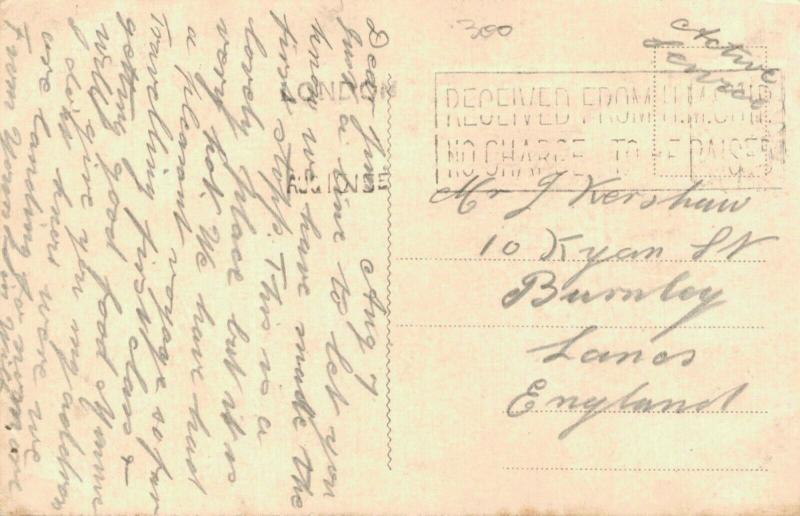 Aug 7
Dear Jim
Just a line to let you
know we have made the
first stop. This is a
lovely place but it is
very hot. We have had
a pleasant voyage so far
travelling first class &
getting good food
will give you my address
I dont know were we
are landing for
From
300
Active
Service
LONDON
AUG
RECEIVED FROM H.M. SHIP
NO CHARGE TO BE RAISED
Mr J Kershaw
10 Kyan St
Burnley
Lancs
England